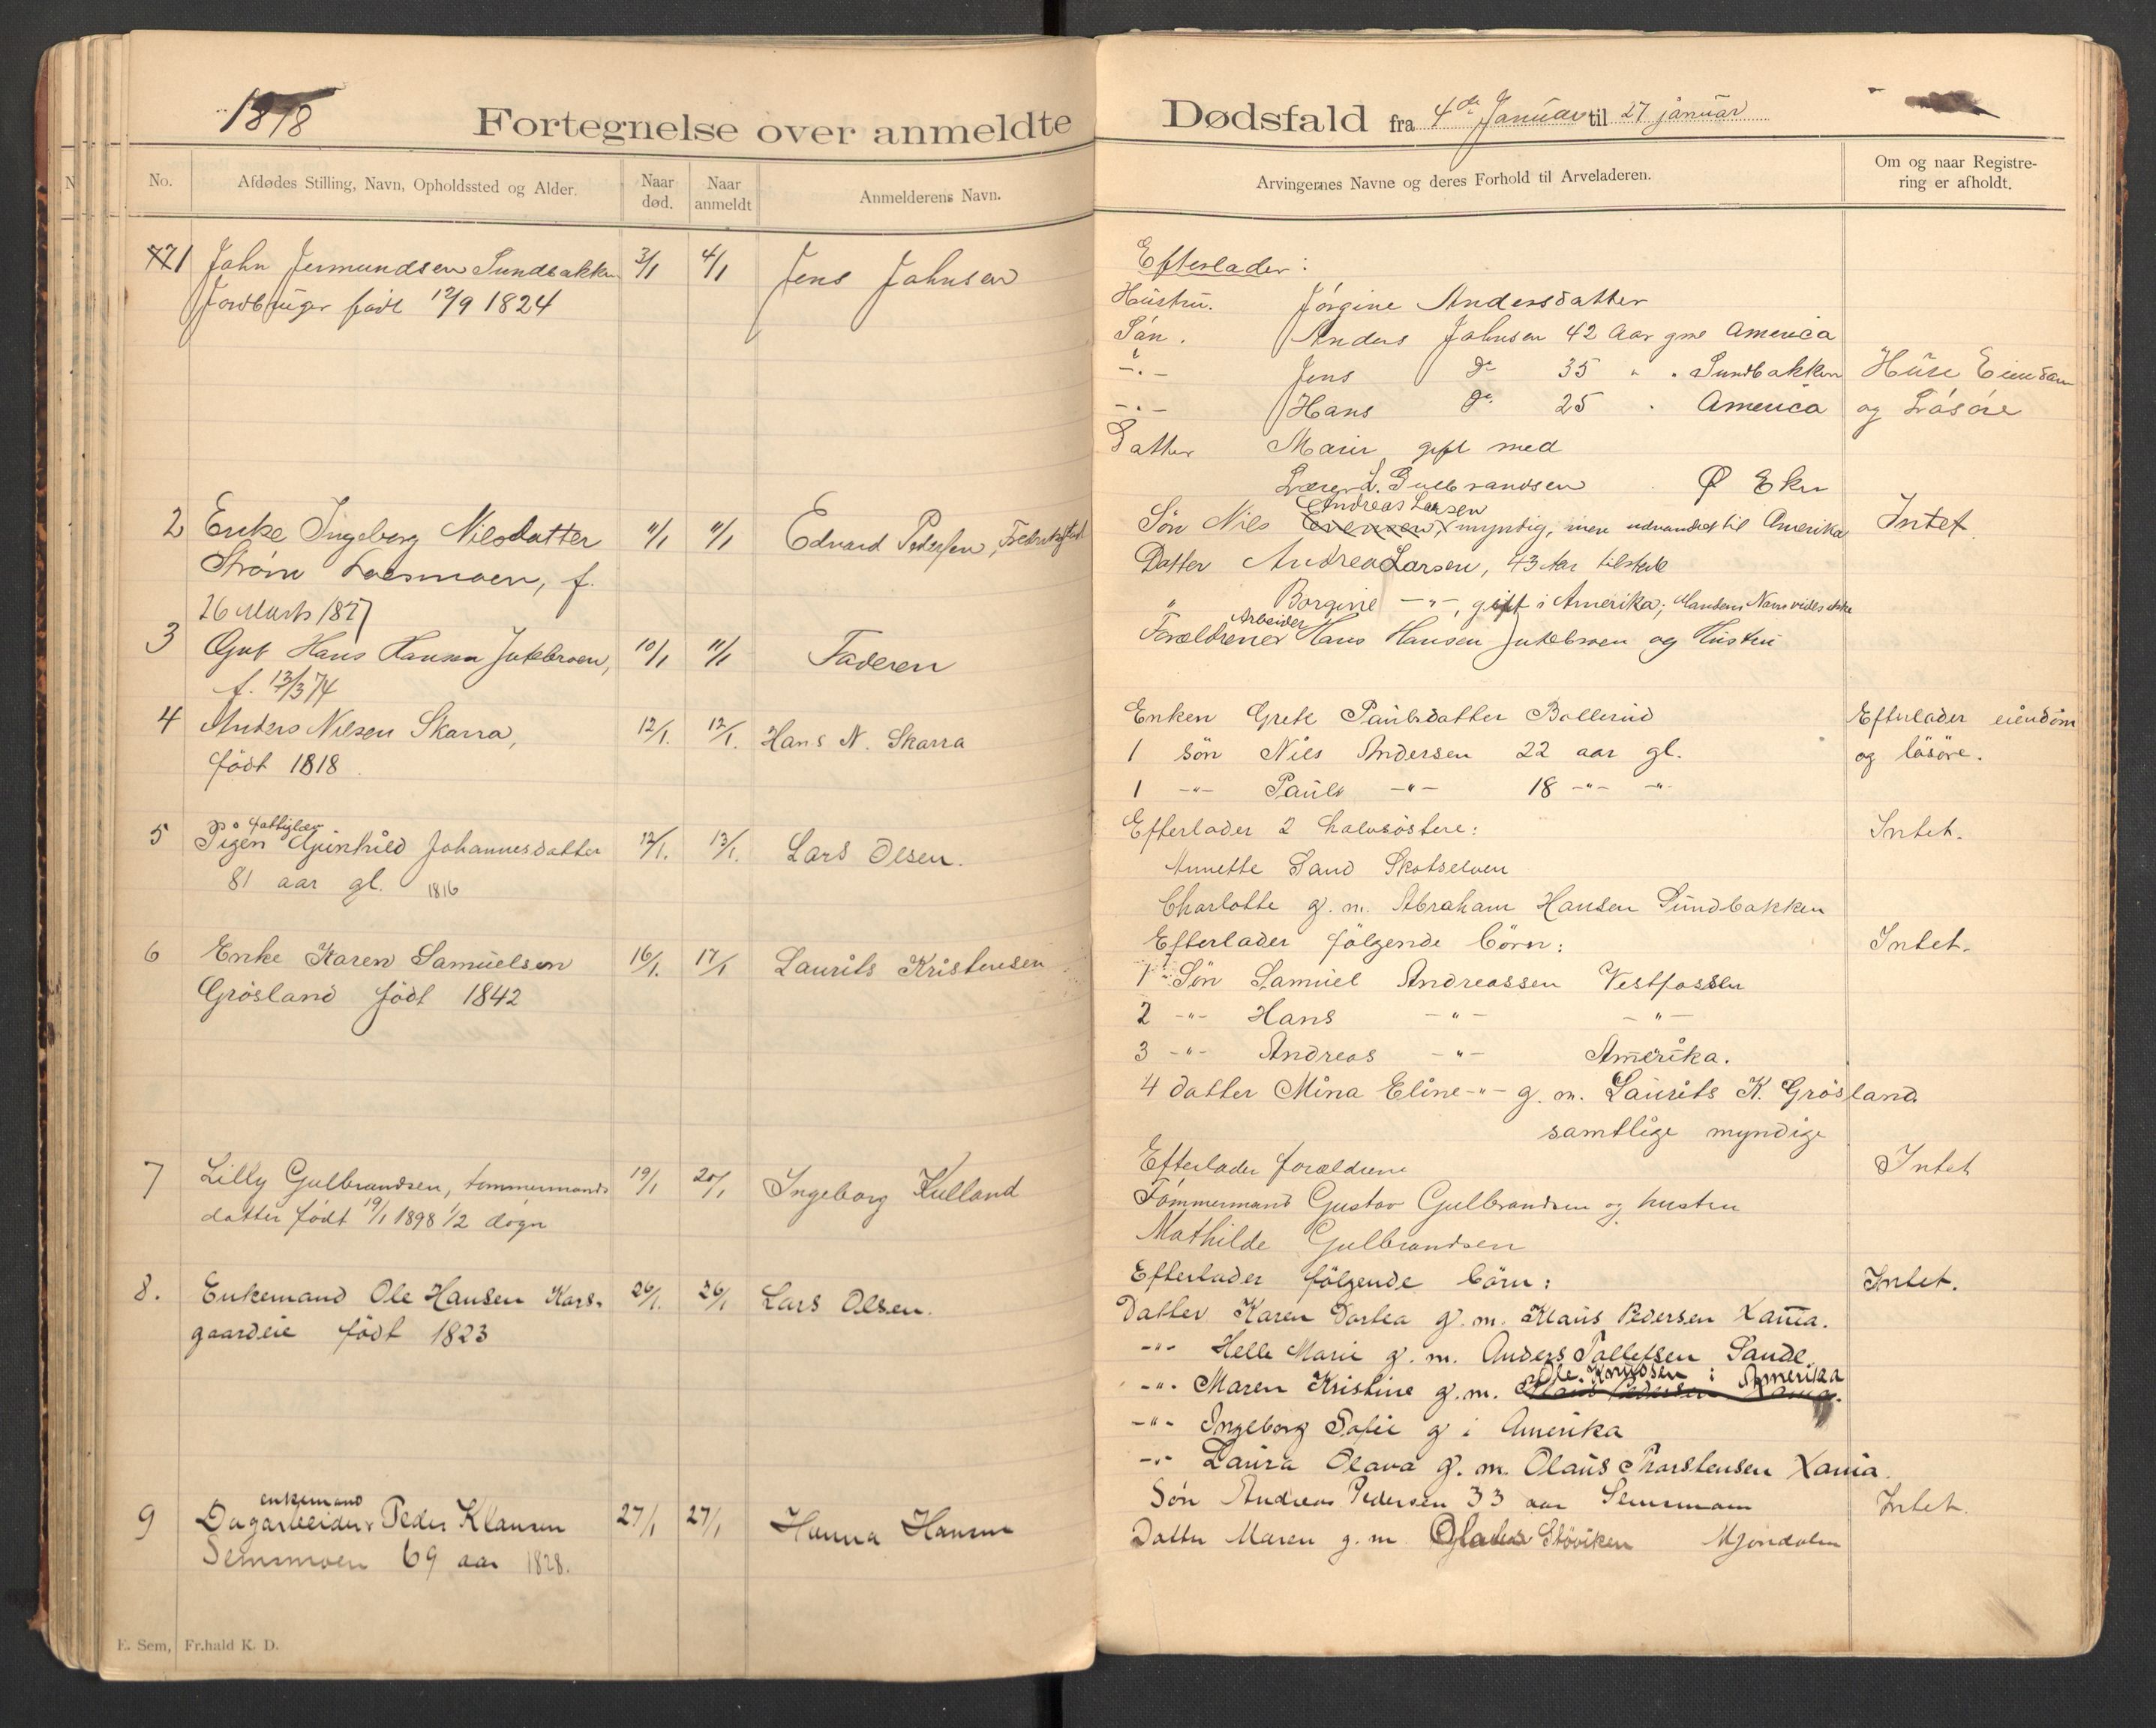 1898
Fortegnelse over anmeldte
No.
Afdødes Stilling, Navn, Opholdssted og Alder.
Naar død.
Naar anmeldt
Anmelderens Navn.
1 John Jermundsen Sundbakken 3/1 4/1 Jens Johnsen
Jordbruger født 12/9 1824
2 Enke Ingeborg Nilsdatter 11/1 11/1 Edvard Pedersen, Fredrikstad
Strøm Loesmoen, f.
26 Marts 1827
3 Gut Hans Hansen Jutebroen, 10/1 11/1 Faderen
f. 13/3 74
4 Anders Nilsen Skarra, 12/1. 12/1. Hans N. Skarra
født 1818
fattiglem
5 Pigen Gunhild Johannesdatter 12/1. 13/1. Lars Olsen.
81 aar gl. 1816
6 Enke Karen Samuelsen 16/1. 17/1 Laurits Kristensen
Grösland födt 1842
7 Lilly Gulbrandsen, tømmermands 19/1 20/1 Ingeborg Kulland
datter født 19/1 1898 1/2 døgn
8. Enkemand Ole Hansen Kors- 26/1. 26/1 Lars Olsen.
gaardeie födt 1823
enkemand
9 Dagarbeider Peder Klausen 27/1 27/1 Hanna Hansen
Semsmoen 69 aar 1828.
E. Sem, Fr.hald K. D.
Dødsfald fra 4de Januar til 27 januar
Arvingernes Navne og deres Forhold til Arveladeren.
Om og naar Registre-
ring er afholdt.
Efterlader:
Hustru. Jörgine Andersdatter
Sön. Anders Johnsen 42 Aar gml America
-"- Jens do 35 " " Sundbakken Huse Eiendom
-"- Hans do 25 " America og Lösöre
Datter Marie gift med
Lærer L. Gulbrandsen Ø Eker
Andreas Larsen
Søn Nils myndig, men udvandret til Amerika Intet
Datter Andrea Larsen, 43 Aar tilstede
" Borgine -"-, gift i Amerika; Mandens Navn vides ikke
Arbeider
Forældrene Hans Hansen Jutebroen og Hustru
Enken Grete Paulsdatter Bollerud Efterlader eiendom
1 sön Nils Andersen 22 aar gl. og lösöre.
1 -"- Paul -"- 18 -"- -"-
Efterlader 2 halvsöstere: Intet.
Annette Sand Skotselven
Charlotte g. m. Abraham Hansen Sundbakken
Efterlader fölgende börn: Intet.
1 Sön Samuel Andreassen Vestfossen
2 -"- Hans -"- -"-
3 -"- Andreas -"- Amerika.
4 datter Mina Eline -"- g. m. Laurits K. Grösland
samtlige myndige
Efterlader forældrene Intet
Tømmermand Gustav Gulbrandsen og hustru
Mathilde Gulbrandsen
Efterlader fölgende börn: Intet.
Datter Karen Dortea g. m. Klaus Pedersen Xania.
-"- Helle Marie g. m. Anders Tollefsen Sande.
Ole Knudsen i Amerika
-"- Maren Kristine g. m. Klaus Pedersen Xania.
-"- Ingeborg Sofie g i Amerika
-"- Laura Olava g. m. Olaus Thorstensen Xania.
Søn Andreas Pedersen 33 aar Semsmoen Intet.
Datter Maren g. m Stöviken Mjøndalen